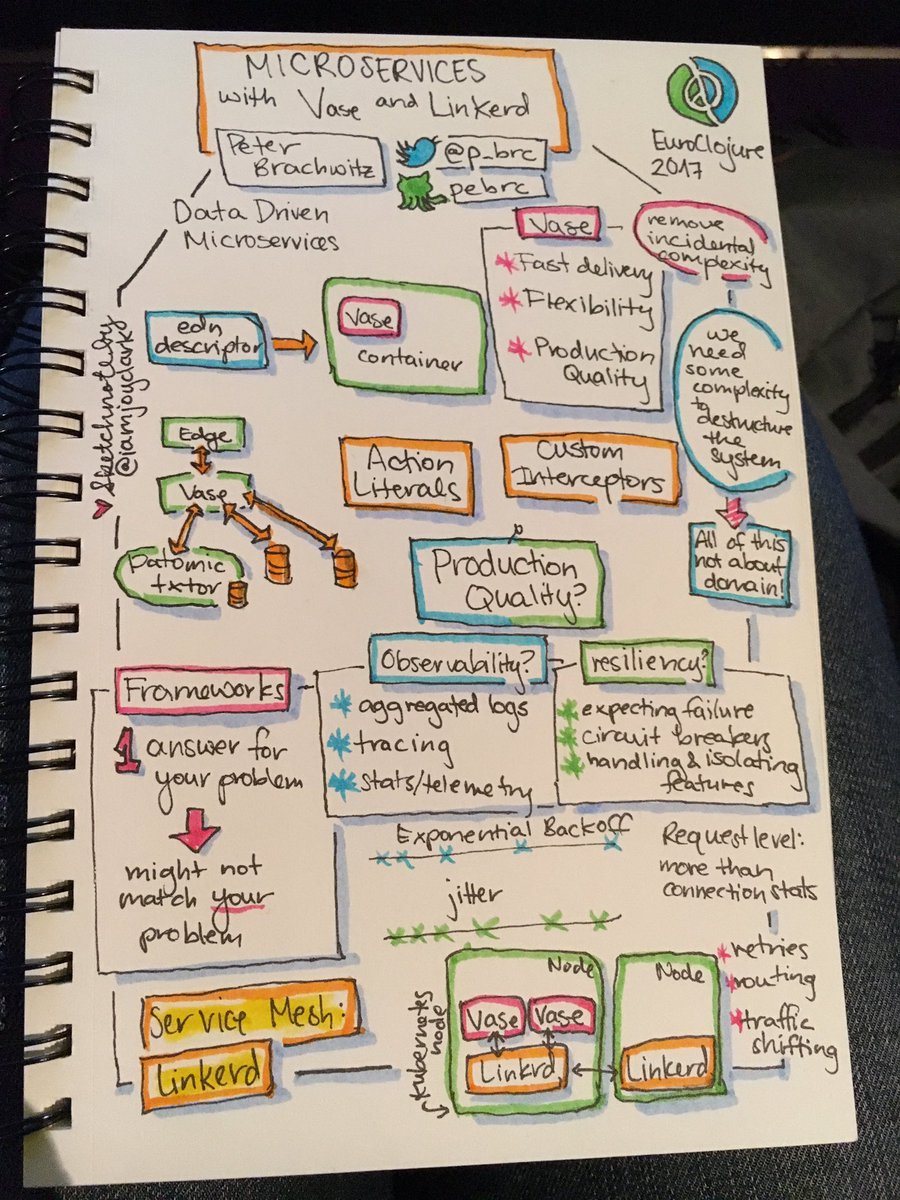 MICROSERVICES
with Vase and Linkerd
Peter
Brachwitz
@p_brc
pebrc
EuroClojure
2017
Data Driven
Microservices
Vase
*Fast delivery
*Flexibility
*Production
Quality
remove
incidental
complexity
we
need
some
complexity
to
destructure
the
system
All of this
not about
domain!
edn
descriptor
Vase
container
Sketchnote by
@iamjoyclark
Edge
Vase
Datomic
txtor
Action
Literals
Custom
Interceptors
Production
Quality?
Frameworks
1 answer for
your problem
might not
match your
problem
Observability?
*aggregated logs
*tracing
*stats/telemetry
resiliency?
*expecting failure
*circuit breakers
*handling & isolating
features
Exponential Backoff
jitter
Request level:
more than
connection stats
*retries
*routing
*traffic
shifting
Service Mesh:
Linkerd
kubernetes
node
Node
Vase
Vase
Linkrd
Node
Linkerd